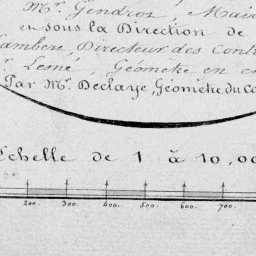 Mr. Gendron, Mair
en sous la Direction de
ambere Directeur des Contr
r. Lemé, Géometre en c
Par Mr. Declaye, Géométre du Ca
Echelle de 1 à 10,00
200. 300. 400. 500. 600. 700.